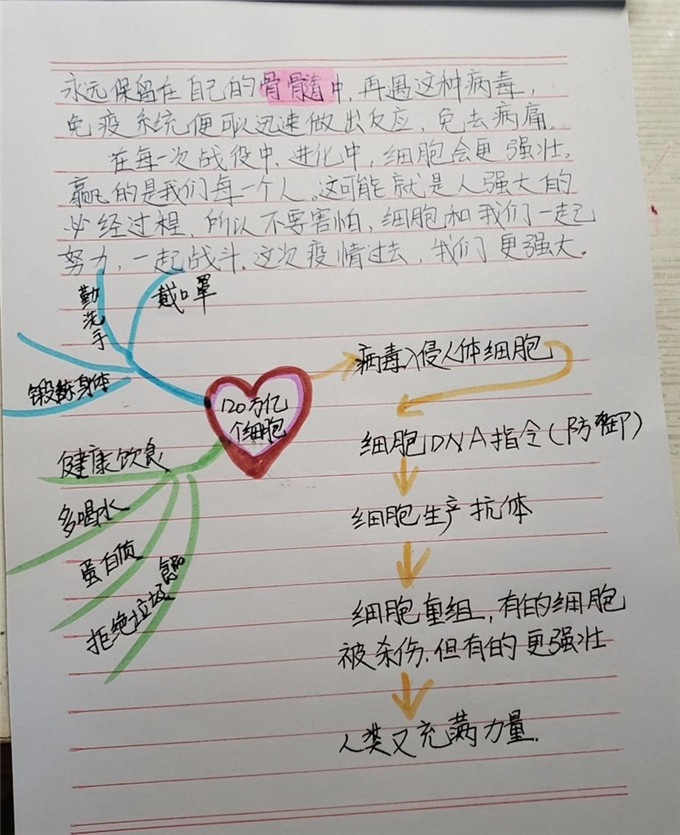 永远保留在自己的骨髓中，再遇这种病毒，
免疫系统便可以迅速做出反应，免去病痛。
在每一次战役中，进化中，细胞会更强壮。
赢的是我们每一个人。这可能就是人强大的
必经过程，所以不要害怕，细胞和我们一起
努力，一起战斗，这次疫情过去，我们更强大。
勤洗手
戴口罩
锻炼身体
120万亿
个细胞
健康饮食
多喝水
蛋白质
拒绝垃圾食品
病毒入侵人体细胞
细胞DNA指令(防御)
细胞生产抗体
细胞重组，有的细胞
被杀伤，但有的更强壮
人类又充满力量.